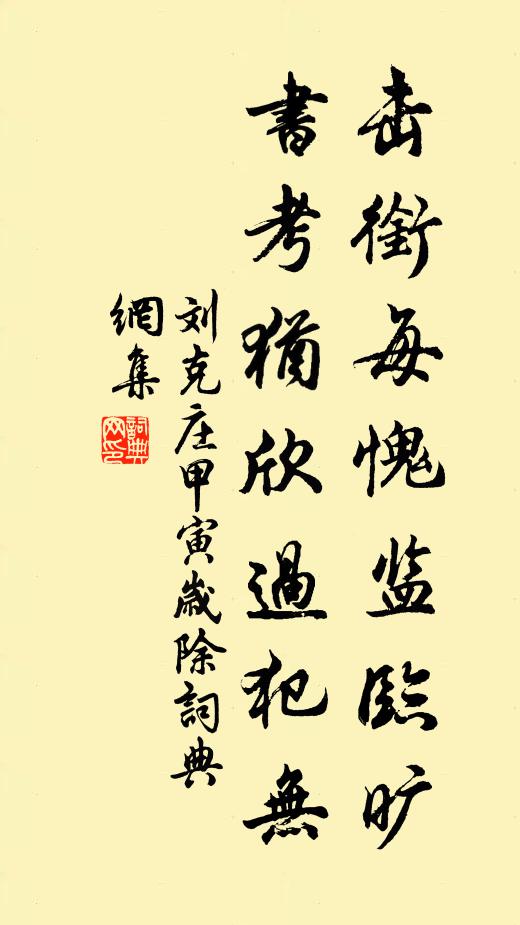 击銜每愧监臨旷
書考猶欣過犯無
刘克庄甲寅歲除詞典
網集
詞典
网印